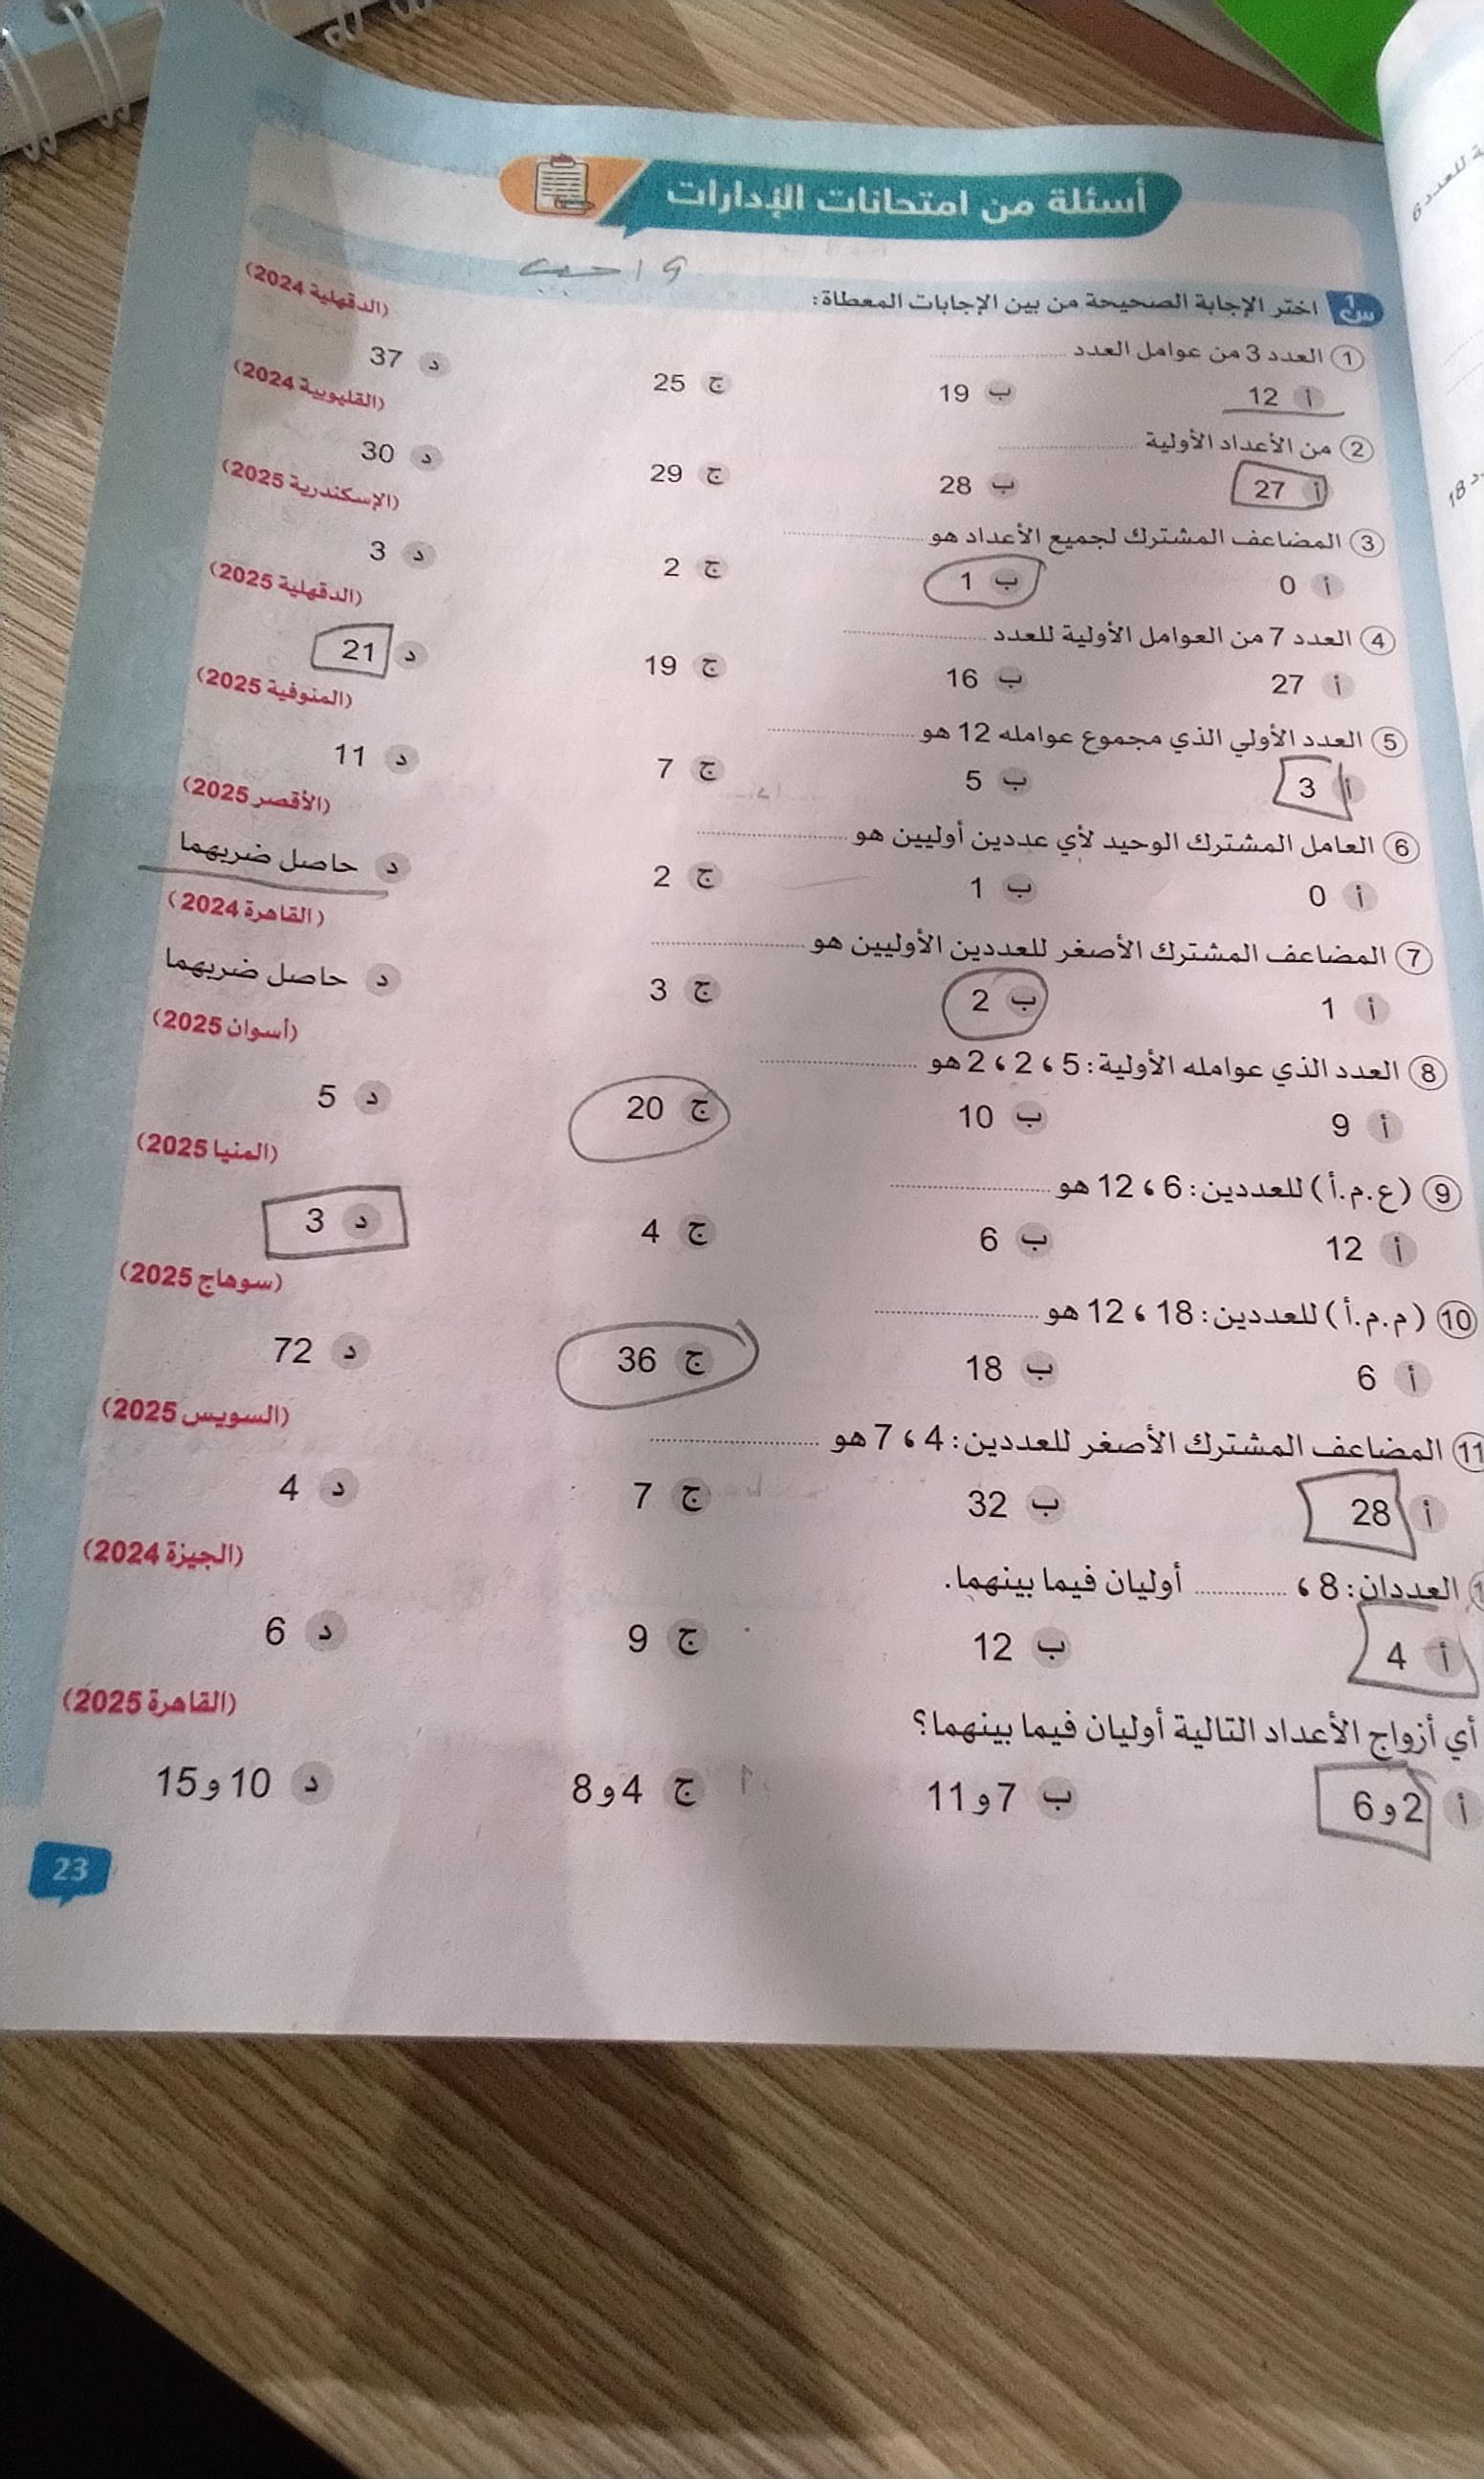 أسئلة من امتحانات الإدارات
واجب
س1 اختر الإجابة الصحيحة من بين الإجابات المعطاة:
1 العدد 3 من عوامل العدد .................... (الدقهلية 2024)
أ 12 ب 19 ج 25 د 37
2 من الأعداد الأولية .................... (القليوبية 2024)
أ 27 ب 28 ج 29 د 30
3 المضاعف المشترك لجميع الأعداد هو .................... (الإسكندرية 2025)
أ 0 ب 1 ج 2 د 3
4 العدد 7 من العوامل الأولية للعدد .................... (الدقهلية 2025)
أ 27 ب 16 ج 19 د 21
5 العدد الأولي الذي مجموع عوامله 12 هو .................... (المنوفية 2025)
أ 3 ب 5 ج 7 د 11
6 العامل المشترك الوحيد لأي عددين أوليين هو .................... (الأقصر 2025)
أ 0 ب 1 ج 2 د حاصل ضربهما
7 المضاعف المشترك الأصغر للعددين الأوليين هو .................... (القاهرة 2024)
أ 1 ب 2 ج 3 د حاصل ضربهما
8 العدد الذي عوامله الأولية: 5 ، 2 ، 2 هو .................... (أسوان 2025)
أ 9 ب 10 ج 20 د 5
9 (ع.م.أ) للعددين: 6 ، 12 هو .................... (المنيا 2025)
أ 12 ب 6 ج 4 د 3
10 (م.م.أ) للعددين: 18 ، 12 هو .................... (سوهاج 2025)
أ 6 ب 18 ج 36 د 72
11 المضاعف المشترك الأصغر للعددين: 4 ، 7 هو .................... (السويس 2025)
أ 28 ب 32 ج 7 د 4
العددان: 8 ، ............ أوليان فيما بينهما. (الجيزة 2024)
أ 4 ب 12 ج 9 د 6
أي أزواج الأعداد التالية أوليان فيما بينهما؟ (القاهرة 2025)
أ 2 و 6 ب 7 و 11 ج 4 و 8 د 10 و 15
23